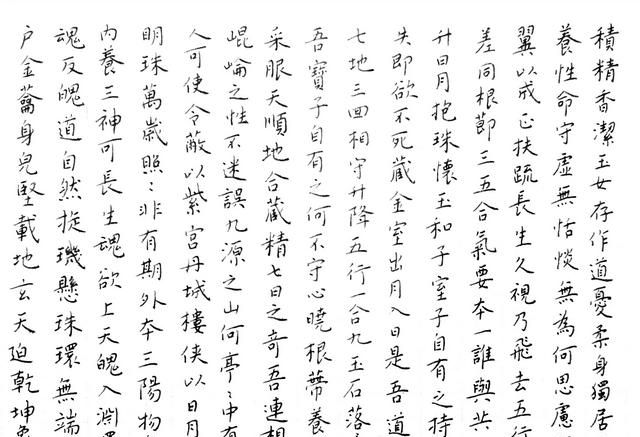 積精香潔玉女存作道憂柔身獨居
養性命守虛無恬惔無為何思慮
翼以成正扶疏長生久視乃飛去五行
差同根節三五合氣要本一誰與共
升日月抱珠懷玉和子室子自有之持
失即欲不死藏金室出月入日是吾道
七地三回相守升降五行一合九玉石落
吾寶子自有之何不守心曉根蒂養
采服天順地合藏精七日之奇吾連相
崐崘之性不迷誤九源之山何亭〻中有
人可使令蔽以紫宮丹城樓俠以日月
明珠萬歲照〻非有期外本三陽物
內養三神可長生魂欲上天魄入淵
魂反魄道自然㨁璣懸珠環無端
戶金籥身兒堅載地玄天迫乾坤